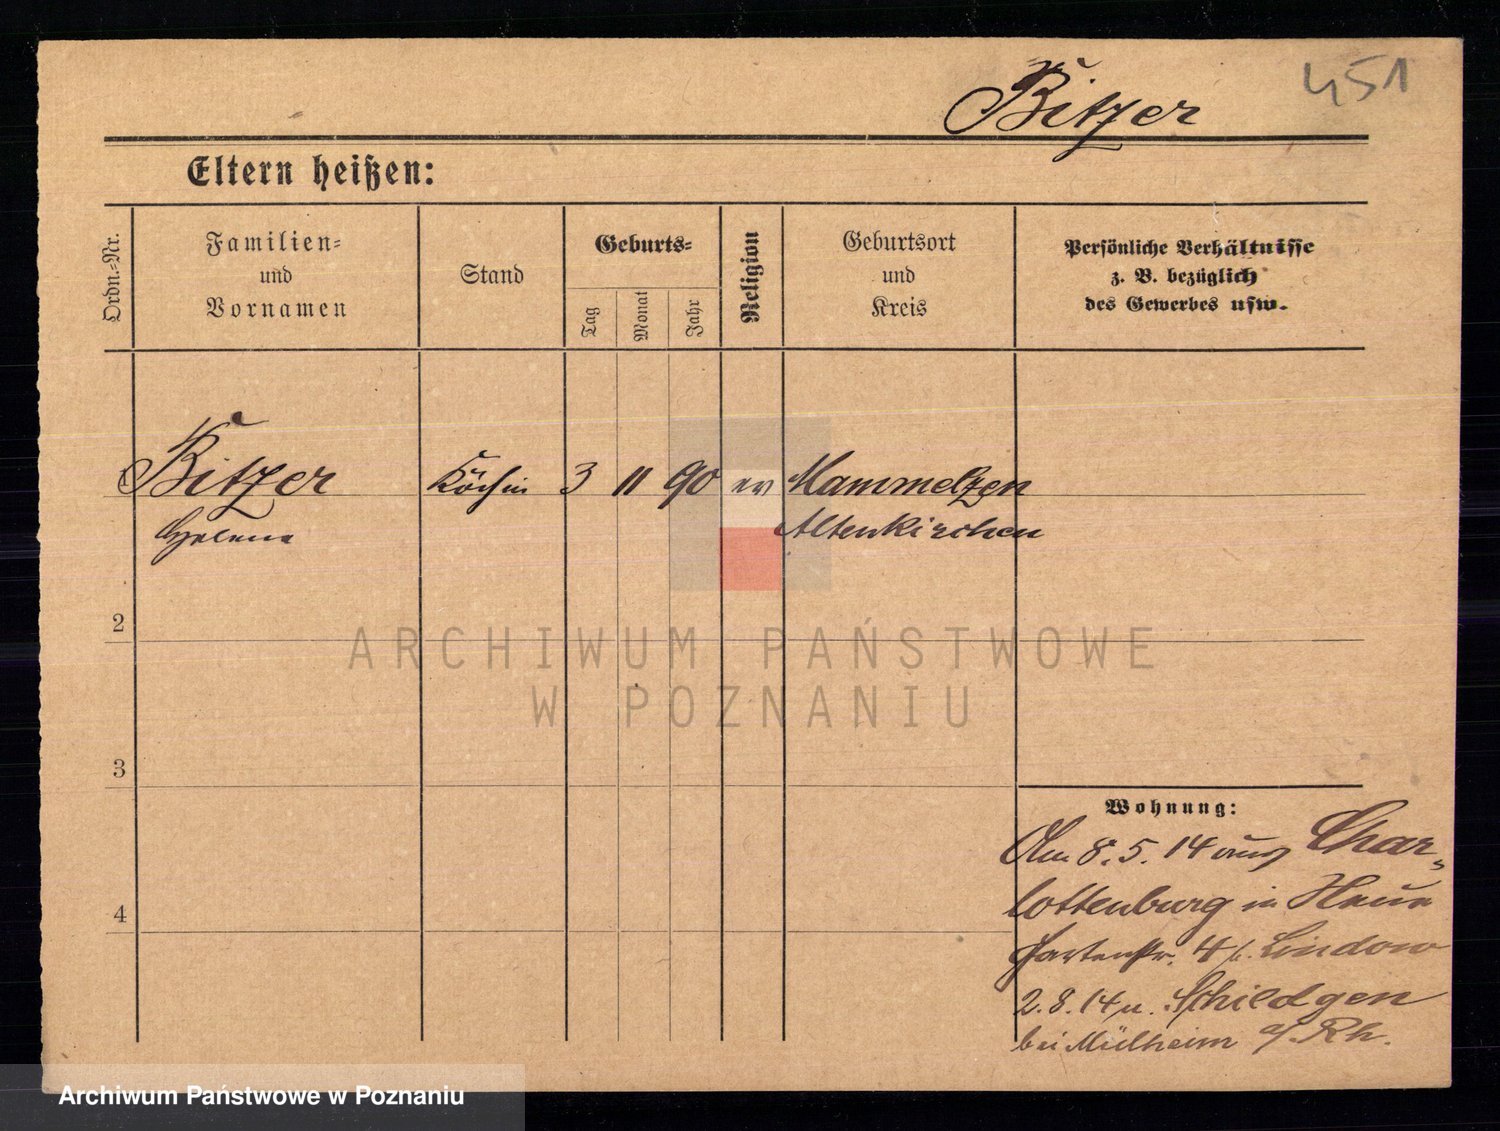 451
Bitzer
Eltern heißen:
Ordn.-Nr.
Familien-
und
Vornamen
Stand
Geburts-
Tag
Monat
Jahr
Religion
Geburtsort
und
Kreis
Persönliche Verhältnisse
z. B. bezüglich
des Gewerbes usw.
1 Bitzer Köchin 3 11 90 ev Mammelzen
Helene Altenkirchen
2
ARCHIWUM PAŃSTWOWE
W POZNANIU
3
4
Wohnung:
Am 8.5.14 aus Char-
lottenburg in
Gartenstr. 4 b. Lindow
2.8.14 n. Schildgen
bei Mülheim a/. Rh.
Archiwum Państwowe w Poznaniu